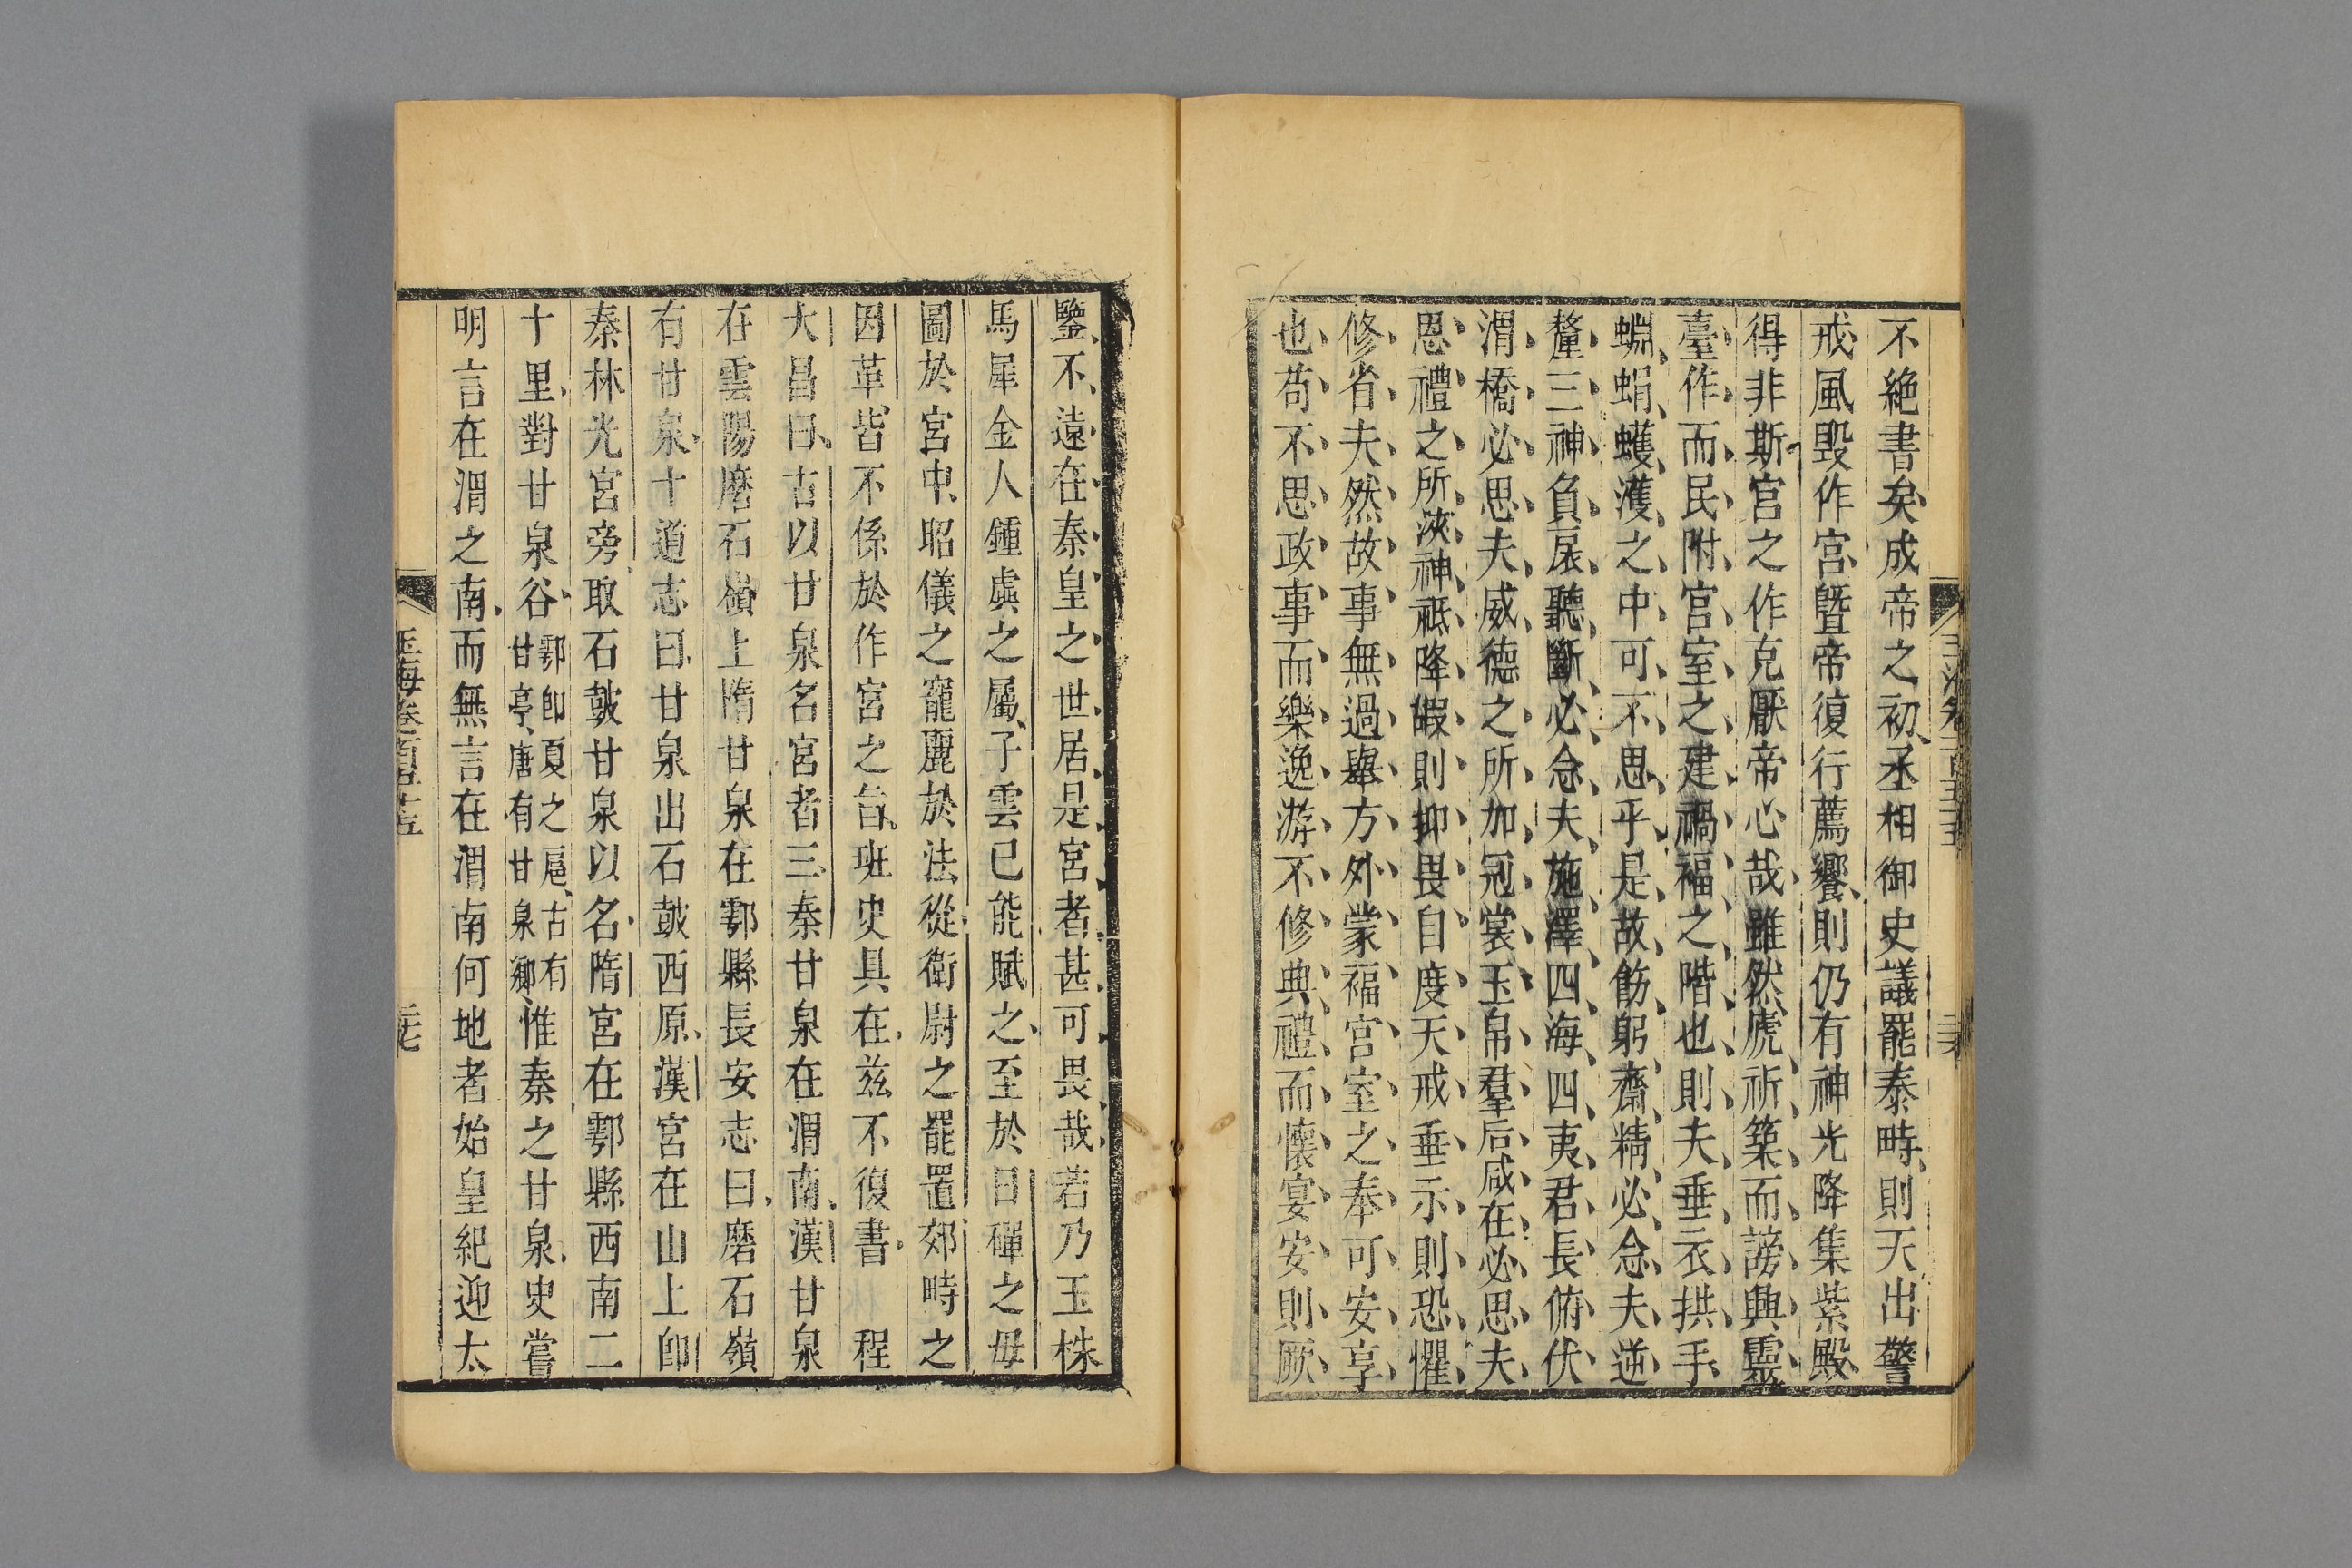 不絶書矣成帝之初丞相御史議罷泰畤則天出警
戒風毀作宮曁帝復行薦饗則仍有神光降集紫殿
得非斯宮之作克厭帝心哉雖然虎祈築而謗興靈
臺作而民附宮室之建禍福之階也則夫垂衣拱手
蜵蜎蠖濩之中可不思乎是故飭躬齋精必念夫逆
釐三神負扆聽斷必念夫施澤四海四夷君長俯伏
渭橋必思夫威德之所加冠裳玉帛羣后咸在必思夫
恩禮之所浹神祇降嘏則抑畏自度天戒垂示則恐懼
修省夫然故事無過舉方外蒙福宮室之奉可安享
也苟不思政事而樂逸游不修典禮而懷宴安則厥
玉海卷一百五十五
二十六
鑒不遠在秦皇之世居是宮者甚可畏哉若乃玉株
馬犀金人鍾虡之屬子雲已能賦之至於日磾之毋
圖於宮中昭儀之寵麗於法從衛尉之罷置郊畤之
因革皆不係於作宮之旨班史具在兹不復書 程
大昌曰古以甘泉名宮者三秦甘泉在渭南漢甘泉
在雲陽磨石嶺上隋甘泉在鄠縣長安志曰磨石嶺
有甘泉十道志曰甘泉出石鼓西原漢宮在山上卽
秦林光宮旁取石鼓甘泉以名隋宮在鄠縣西南二
十里對甘泉谷鄠卽夏之扈古有甘亭唐有甘泉鄉惟秦之甘泉史嘗
明言在渭之南而無言在渭南何地者始皇紀迎太
玉海卷一百五十五
二十七